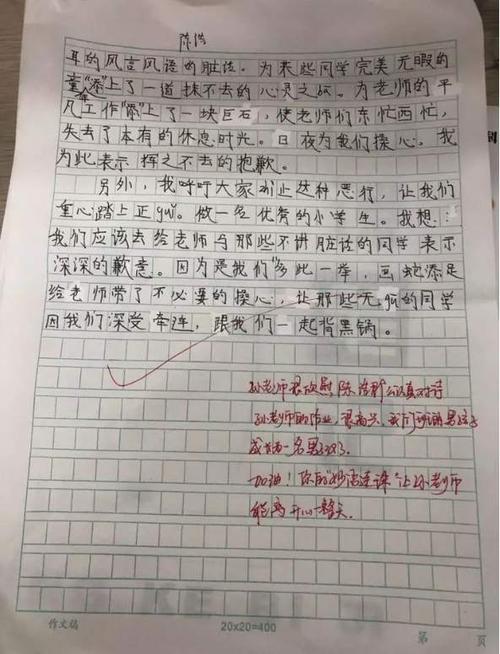 陈浩
耳的风言风语的脏话。为某些同学完美无暇的
童年“添”上了一道抹不去的心灵之
为老师的平
凡工作“添”上了一块巨石，使老师们东忙西忙，
失去了本有的休息时光。日夜为我们操心，我
为此表示挥之不去的抱歉。
另外，我呼吁大家制止这种恶行，让我们
重心踏上正gui。做一名优秀的小学生。我想：
我们应该去给老师与那些不讲脏话的同学表示
深深的歉意。因为是我们“多此一举，画蛇添足
给老师带了不必要的操心，让那些无gu的同学
因我们深受牵连，跟我们一起背黑锅。
孙老师很欣慰陈浩能认真对待
孙老师的作业，很高兴，我们
男孩子
成长为一名男子汉了。
加油！你的“妙语连珠”让孙老师
能开心一整天。
作文稿
20×20=400
第 页